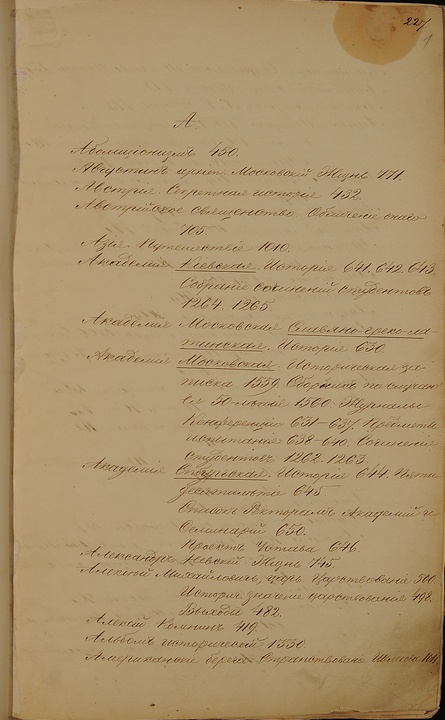 227
1
А
Аболиціонизмъ 450.
Августинъ архіеп. Московскій. Жизнь 771.
Австрія. Секретная исторія 432.
Австрійское священство. Обличеніе онаго
705.
Азія. Путешествіе 1010.
Академія Кіевская. Исторія 641. 642. 643.
Собраніе сочиненій студентовъ
1264. 1265.
Академія Московская Славяно-греко-ла-
тинская. Исторія 630.
Академія Московская. Историческая за-
писка 1559. Сборникъ по случаю
50-лѣтія 1560. Журналы
Конференціи 631-637. Предметы
испытанія 638-640. Сочиненія
студентовъ 1262. 1263.
Академія Спбургская. Исторія 644. Пяти-
десятилѣтіе 645
Списокъ Ректорамъ Академій и
Семинарій 650.
Проектъ Устава 646.
Александръ Невскій Жизнь 745.
Алексѣй Михайловичъ, царь. Царствованіе 500
Историч. значеніе царствованія 498.
Выходы 482.
Алексѣй Комнинъ 419.
Альбомъ историческій 1550.
Американскіе берега Странствованіе Шелехова